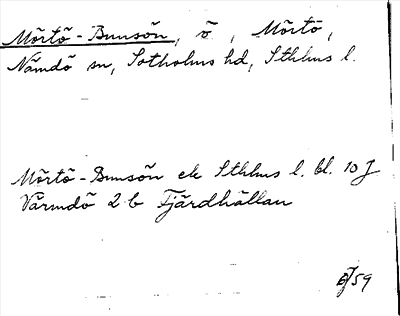 Mörtö-Bunsön, ö, Mörtö,
Nämdö sn, Sotholms hd, Sthlms l.
Mörtö-Bunsön ek Sthlms l. bl. 10 J
Värmdö 2 b Fjärdhällan
59